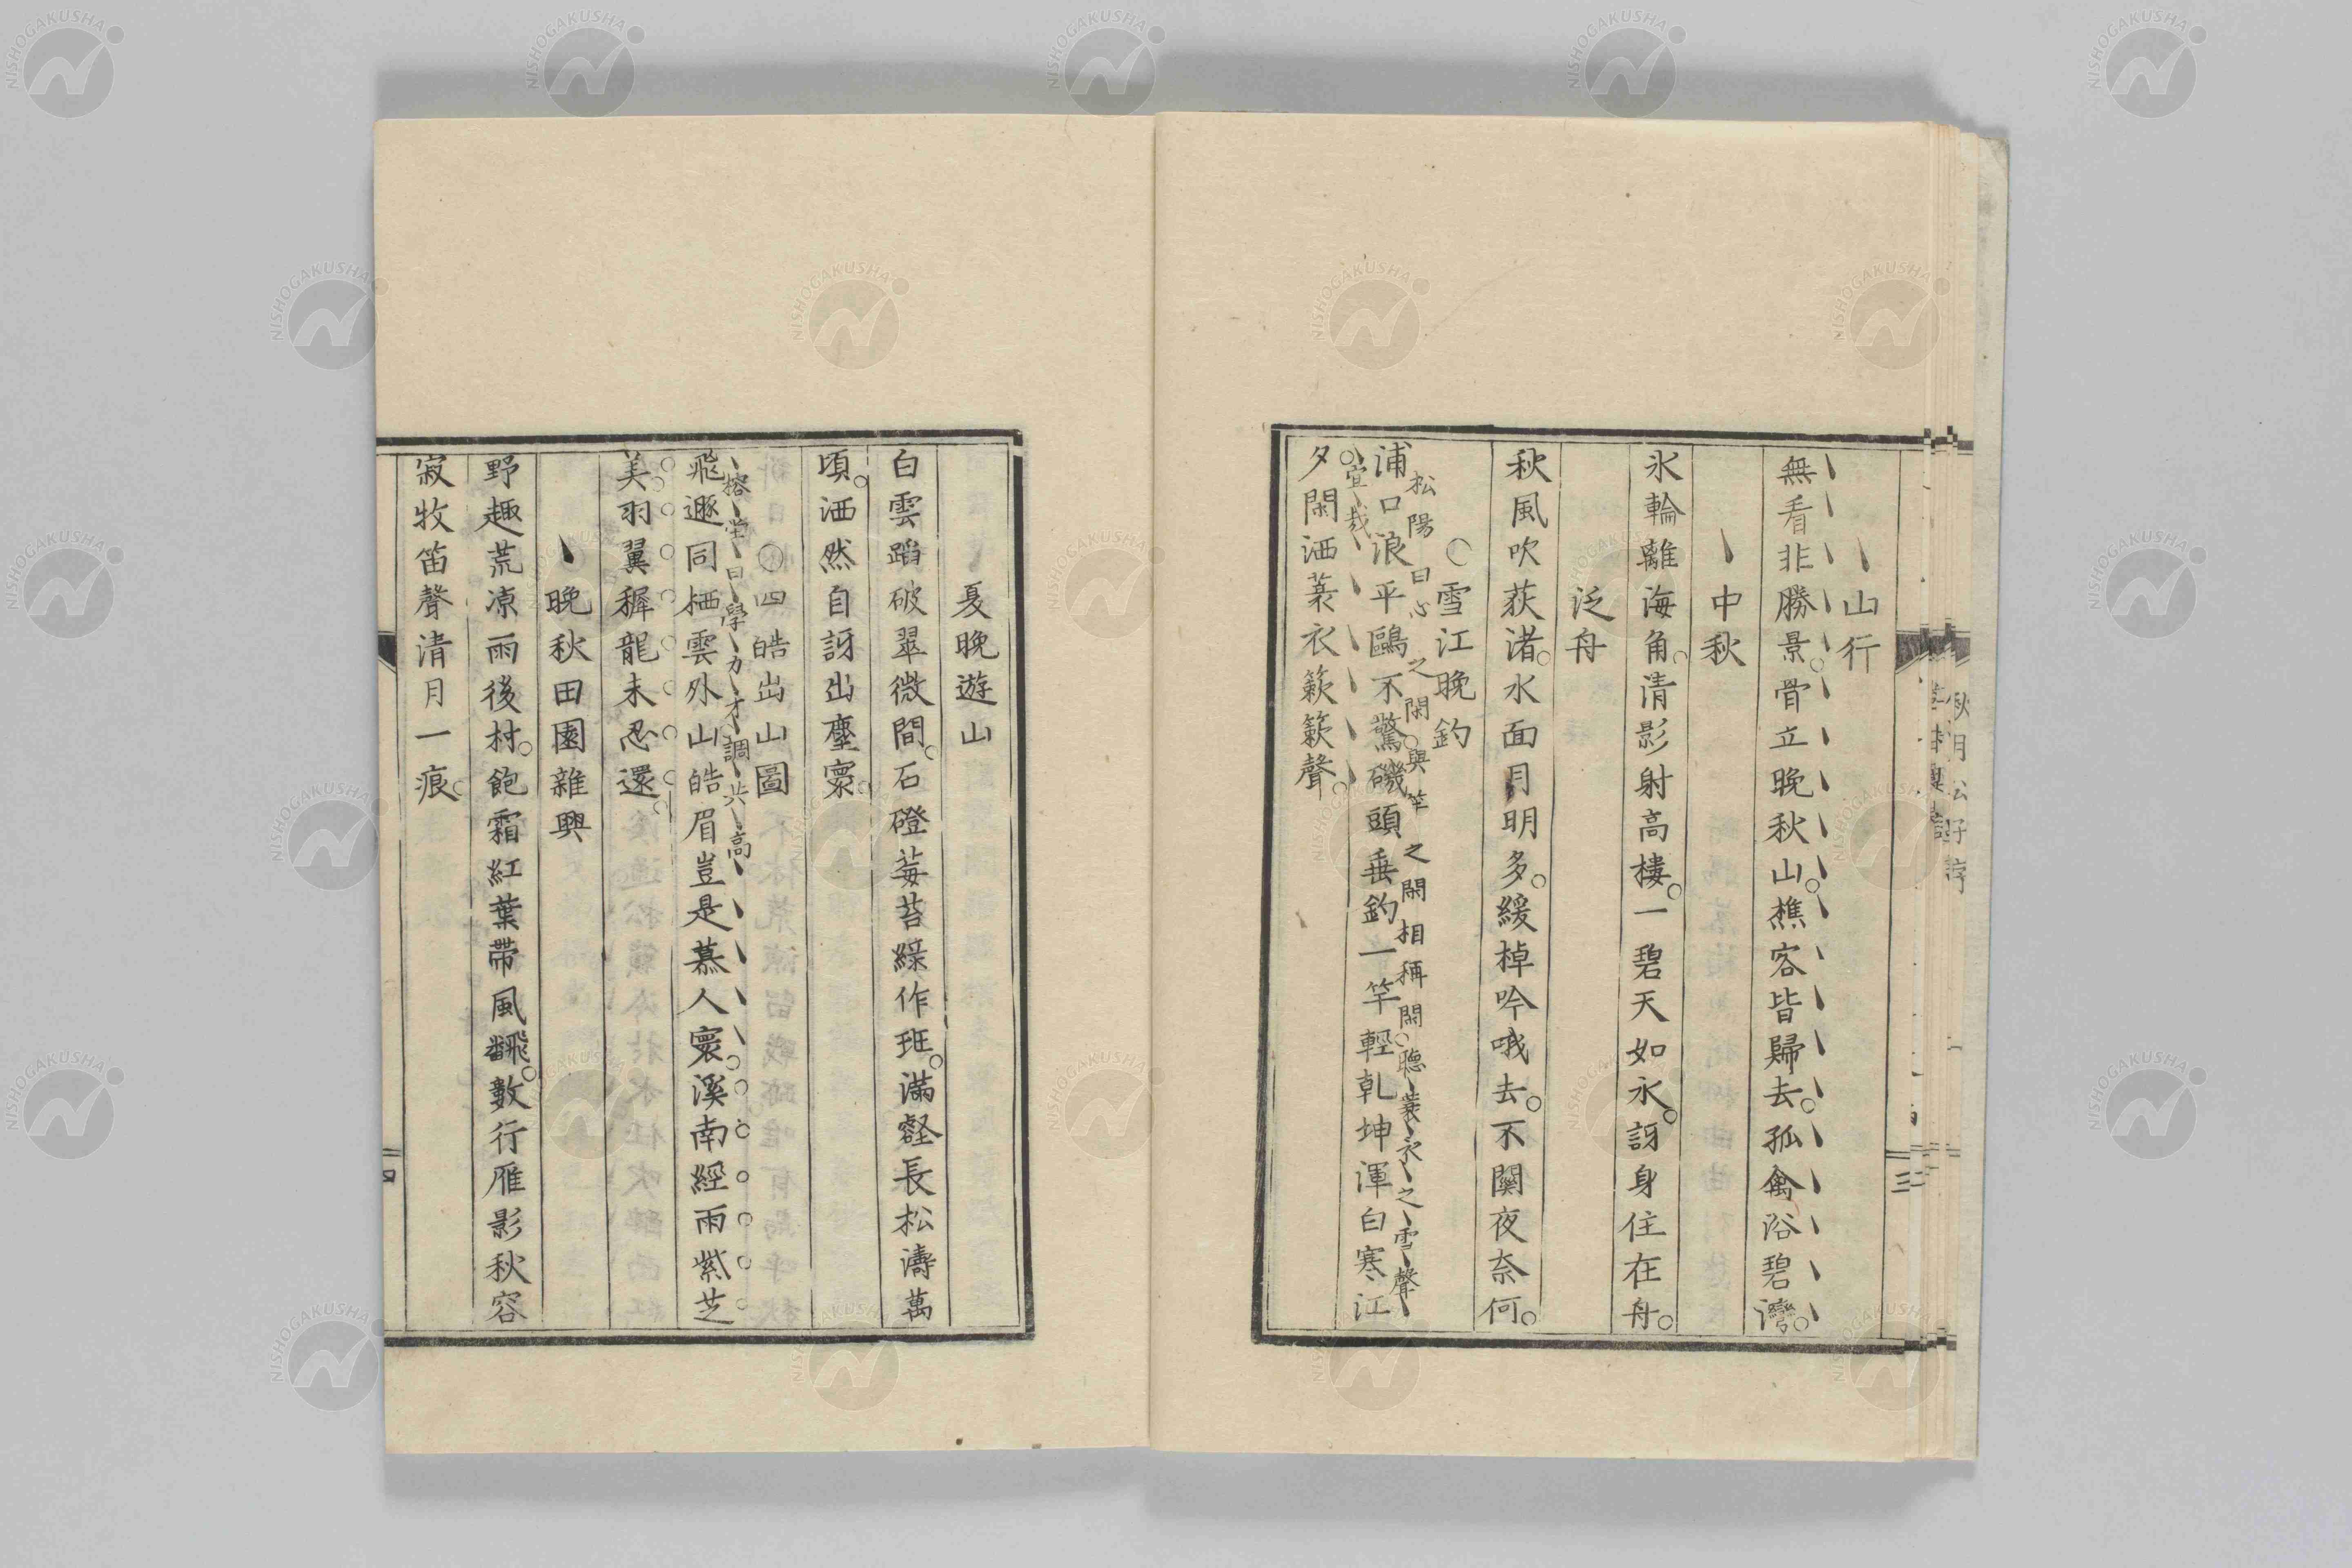 山行
無看非勝景骨立晚秋山樵客皆歸去孤禽浴碧灣
中秋
氷輪離海角清影射高樓一碧天如水訝身住在舟
泛舟
秋風吹荻渚水面月明多緩棹吟哦去不關夜奈何
雪江晚釣
松陽曰心之閑與竿之閑相稱閑聽蓑衣之雪聲
浦口浪平鷗不驚磯頭垂釣一竿輕乾坤渾白寒江
宜哉
夕閑洒蓑衣簌簌聲
三
夏晚遊山
白雲蹈破翠微間石磴莓苔綠作班滿壑長松濤萬
頃洒然自訝出塵寰
四皓出山圖
榕堂曰學力才調共高
飛遯同栖雲外山皓眉豈是慕人寰溪南經雨紫芝
美羽翼穉龍未忍還
晚秋田園雜興
野趣荒凉雨後村飽霜紅葉帶風飜數行雁影秋容
寂牧笛聲清月一痕
四
NISHOGAKUSHA